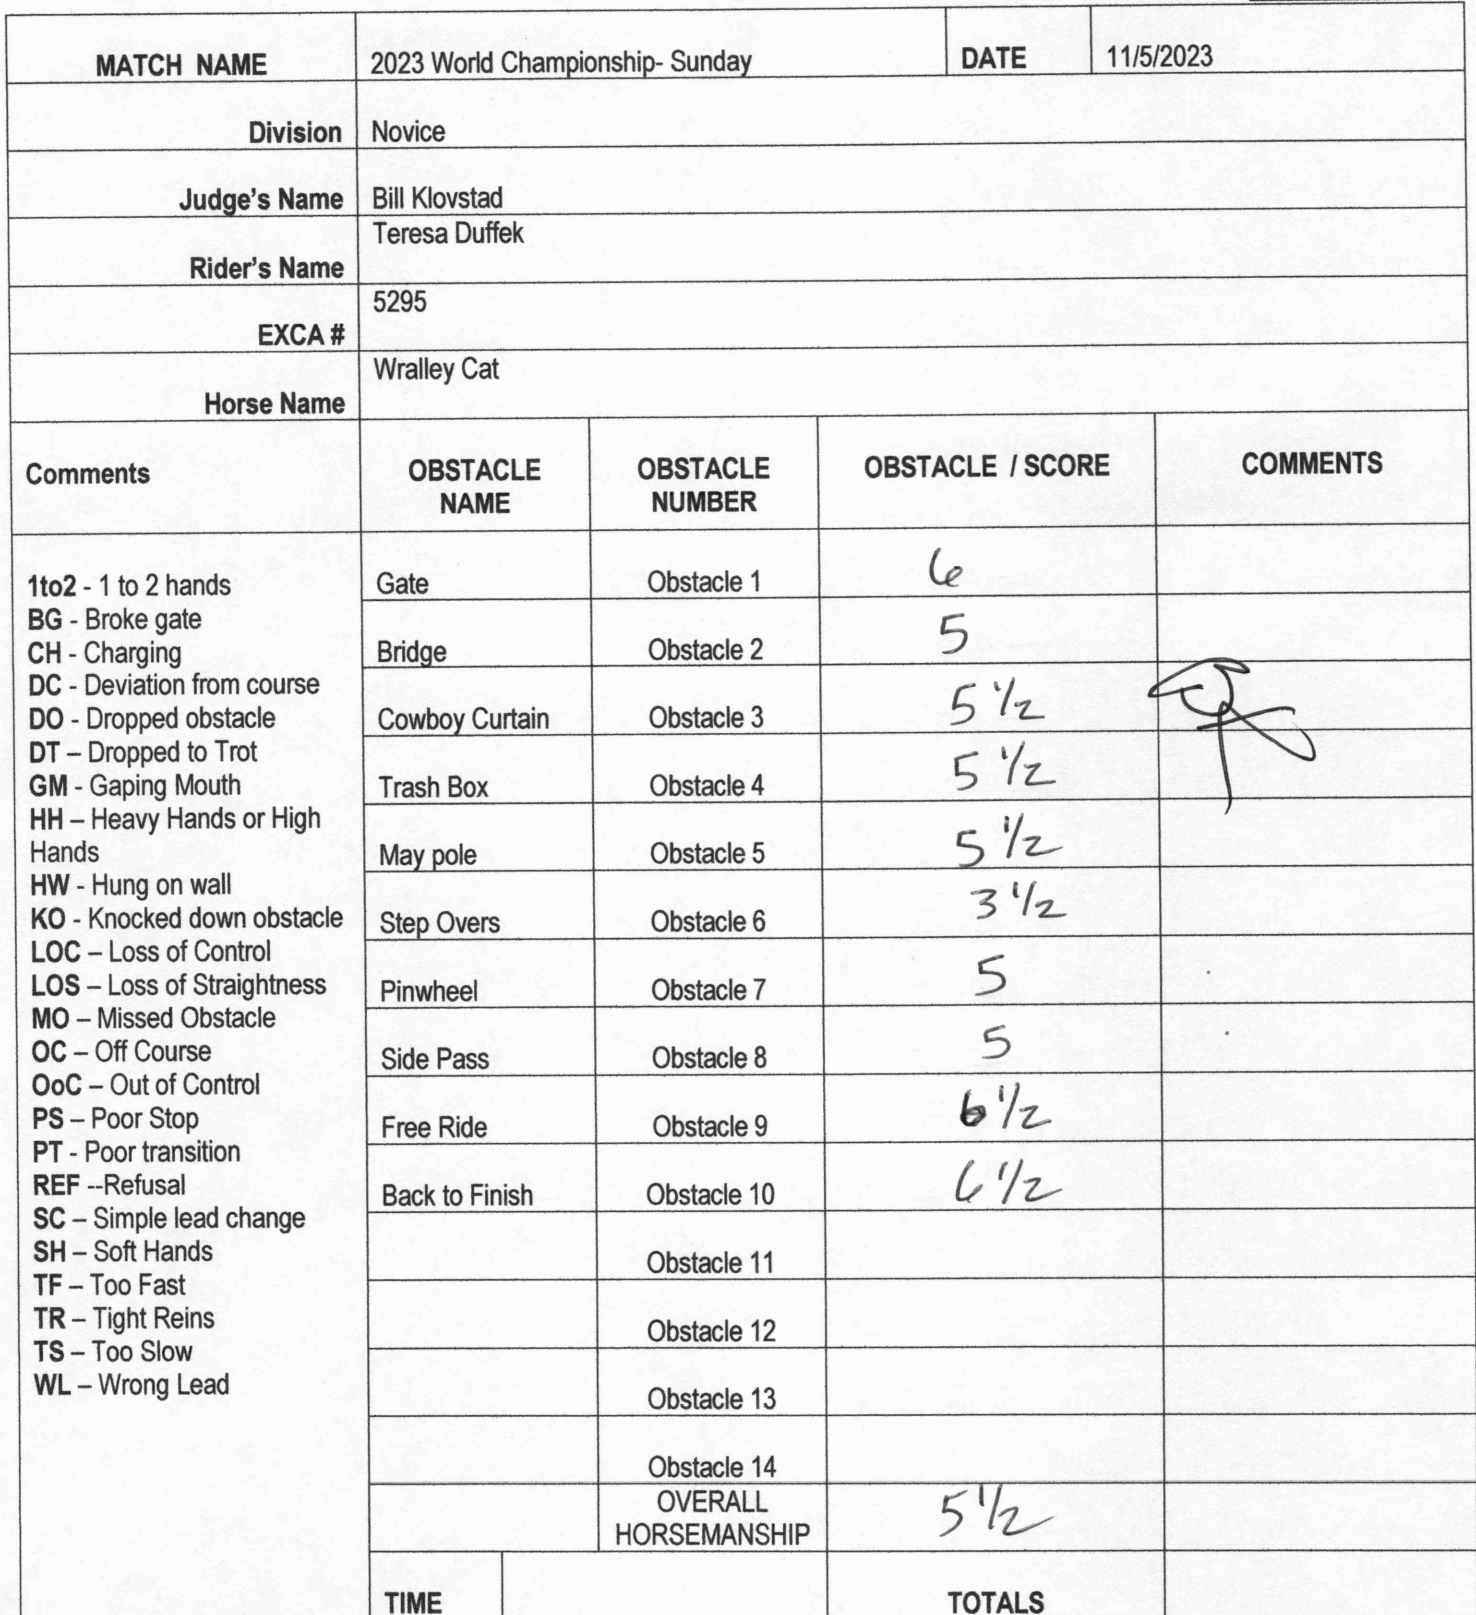 MATCH NAME 2023 World Championship- Sunday DATE 11/5/2023
Division Novice
Judge's Name Bill Klovstad
Teresa Duffek
Rider's Name
5295
EXCA #
Wralley Cat
Horse Name
Comments OBSTACLE NAME OBSTACLE NUMBER OBSTACLE / SCORE COMMENTS
1to2 - 1 to 2 hands
BG - Broke gate
CH - Charging
DC - Deviation from course
DO - Dropped obstacle
DT – Dropped to Trot
GM - Gaping Mouth
HH – Heavy Hands or High
Hands
HW - Hung on wall
KO - Knocked down obstacle
LOC – Loss of Control
LOS – Loss of Straightness
MO – Missed Obstacle
OC – Off Course
OoC – Out of Control
PS – Poor Stop
PT - Poor transition
REF --Refusal
SC – Simple lead change
SH – Soft Hands
TF – Too Fast
TR – Tight Reins
TS – Too Slow
WL – Wrong Lead
Gate Obstacle 1 6
Bridge Obstacle 2 5
Cowboy Curtain Obstacle 3 5 1/2
Trash Box Obstacle 4 5 1/2
May pole Obstacle 5 5 1/2
Step Overs Obstacle 6 3 1/2
Pinwheel Obstacle 7 5
Side Pass Obstacle 8 5
Free Ride Obstacle 9 6 1/2
Back to Finish Obstacle 10 6 1/2
Obstacle 11
Obstacle 12
Obstacle 13
Obstacle 14
OVERALL
HORSEMANSHIP 5 1/2
TIME TOTALS